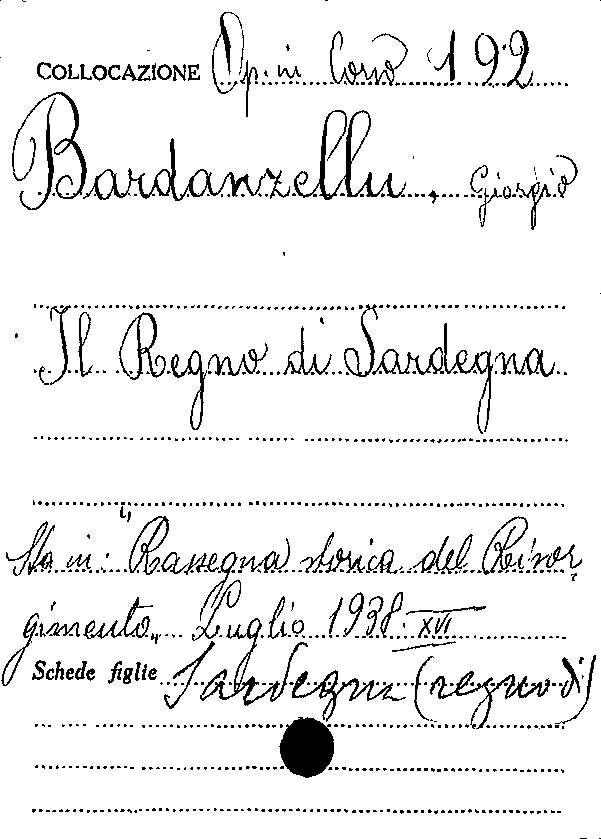 COLLOCAZIONE Op. in Corso 192
Bardanzellu, Giorgio
Il Regno di Sardegna
Sta in: "Rassegna storica del Risor-
gimento„ Luglio 1938. XVI
Schede figlie Sardegna (regno di)